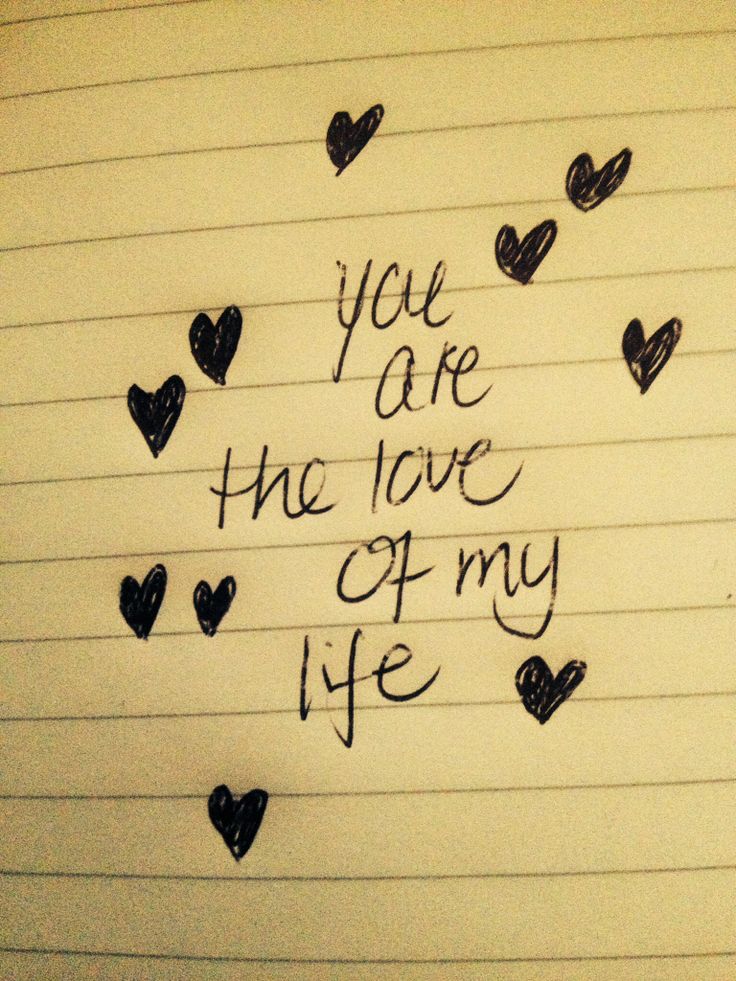 you
are
the love
of my
life